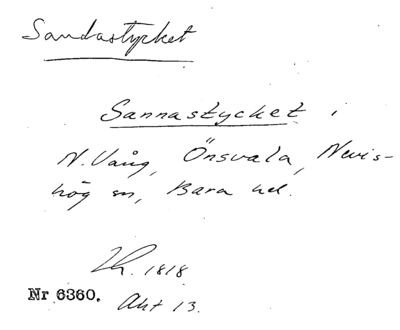 Sandastycket
Sannastycket i
N. Vång, Önsvala, Nevis-
hög sn, Bara hd.
Lh. 1818
Nr 6360. Akt 13.